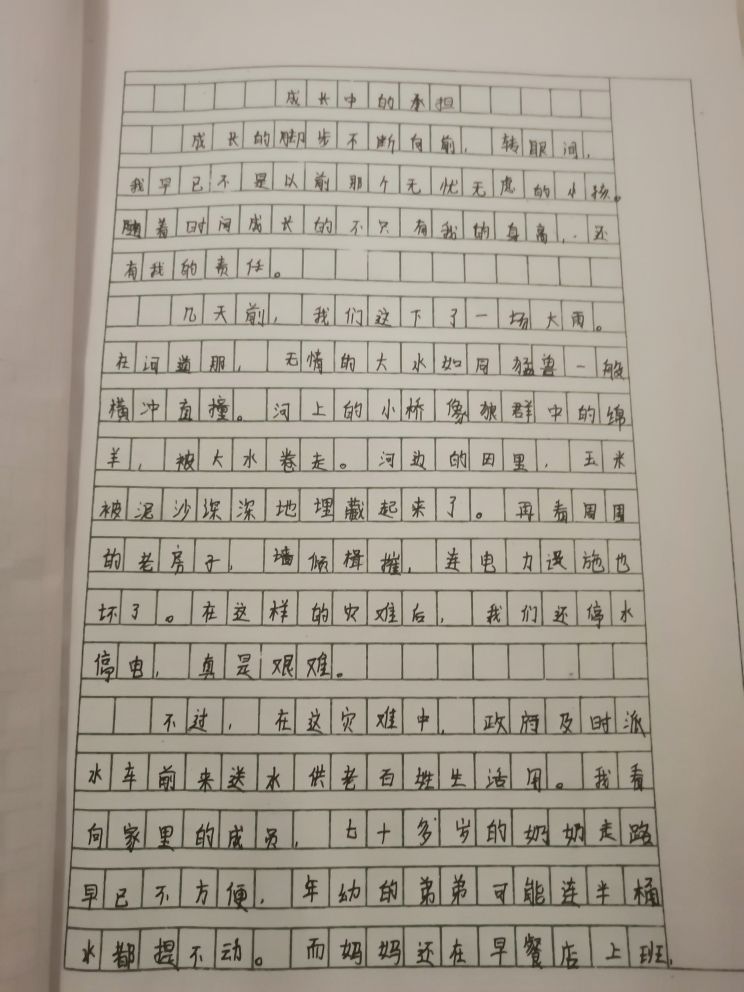 成长中的承担
成长的脚步不断向前，转眼间，
我早已不是以前那个无忧无虑的小孩。
随着时间成长的不只有我的身高，还
有我的责任。
几天前，我们这下了一场大雨。
在河道那，无情的大水如同猛兽一般
横冲直撞。河上的小桥像狼群中的绵
羊，被大水卷走。河边的田里，玉米
被泥沙深深地埋藏起来了。再看周围
的老房子，墙倾楫摧，连电力设施也
坏了。在这样的灾难后，我们还停水
停电，真是艰难。
不过，在这灾难中，政府及时派
水车前来送水供老百姓生活用。我看
向家里的成员，七十多岁的奶奶走路
早已不方便，年幼的弟弟可能连半桶
水都提不动。而妈妈还在早餐店上班，